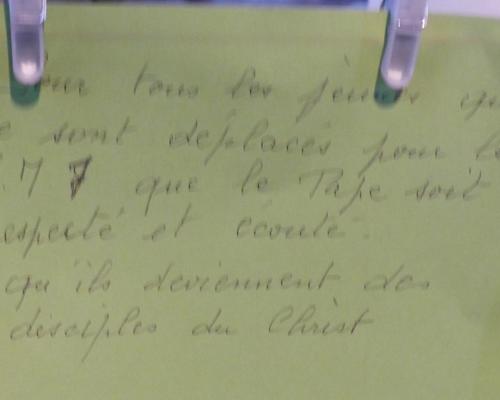 Pour tous les jeunes qu
e sont déplacés pour le
.M 7 que le Pape soit
especté et écouté.
qu'ils deviennent des
disciples du Christ